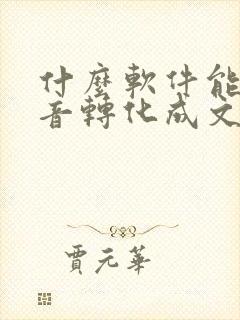 什麼軟件能
音轉化成文
賈元華